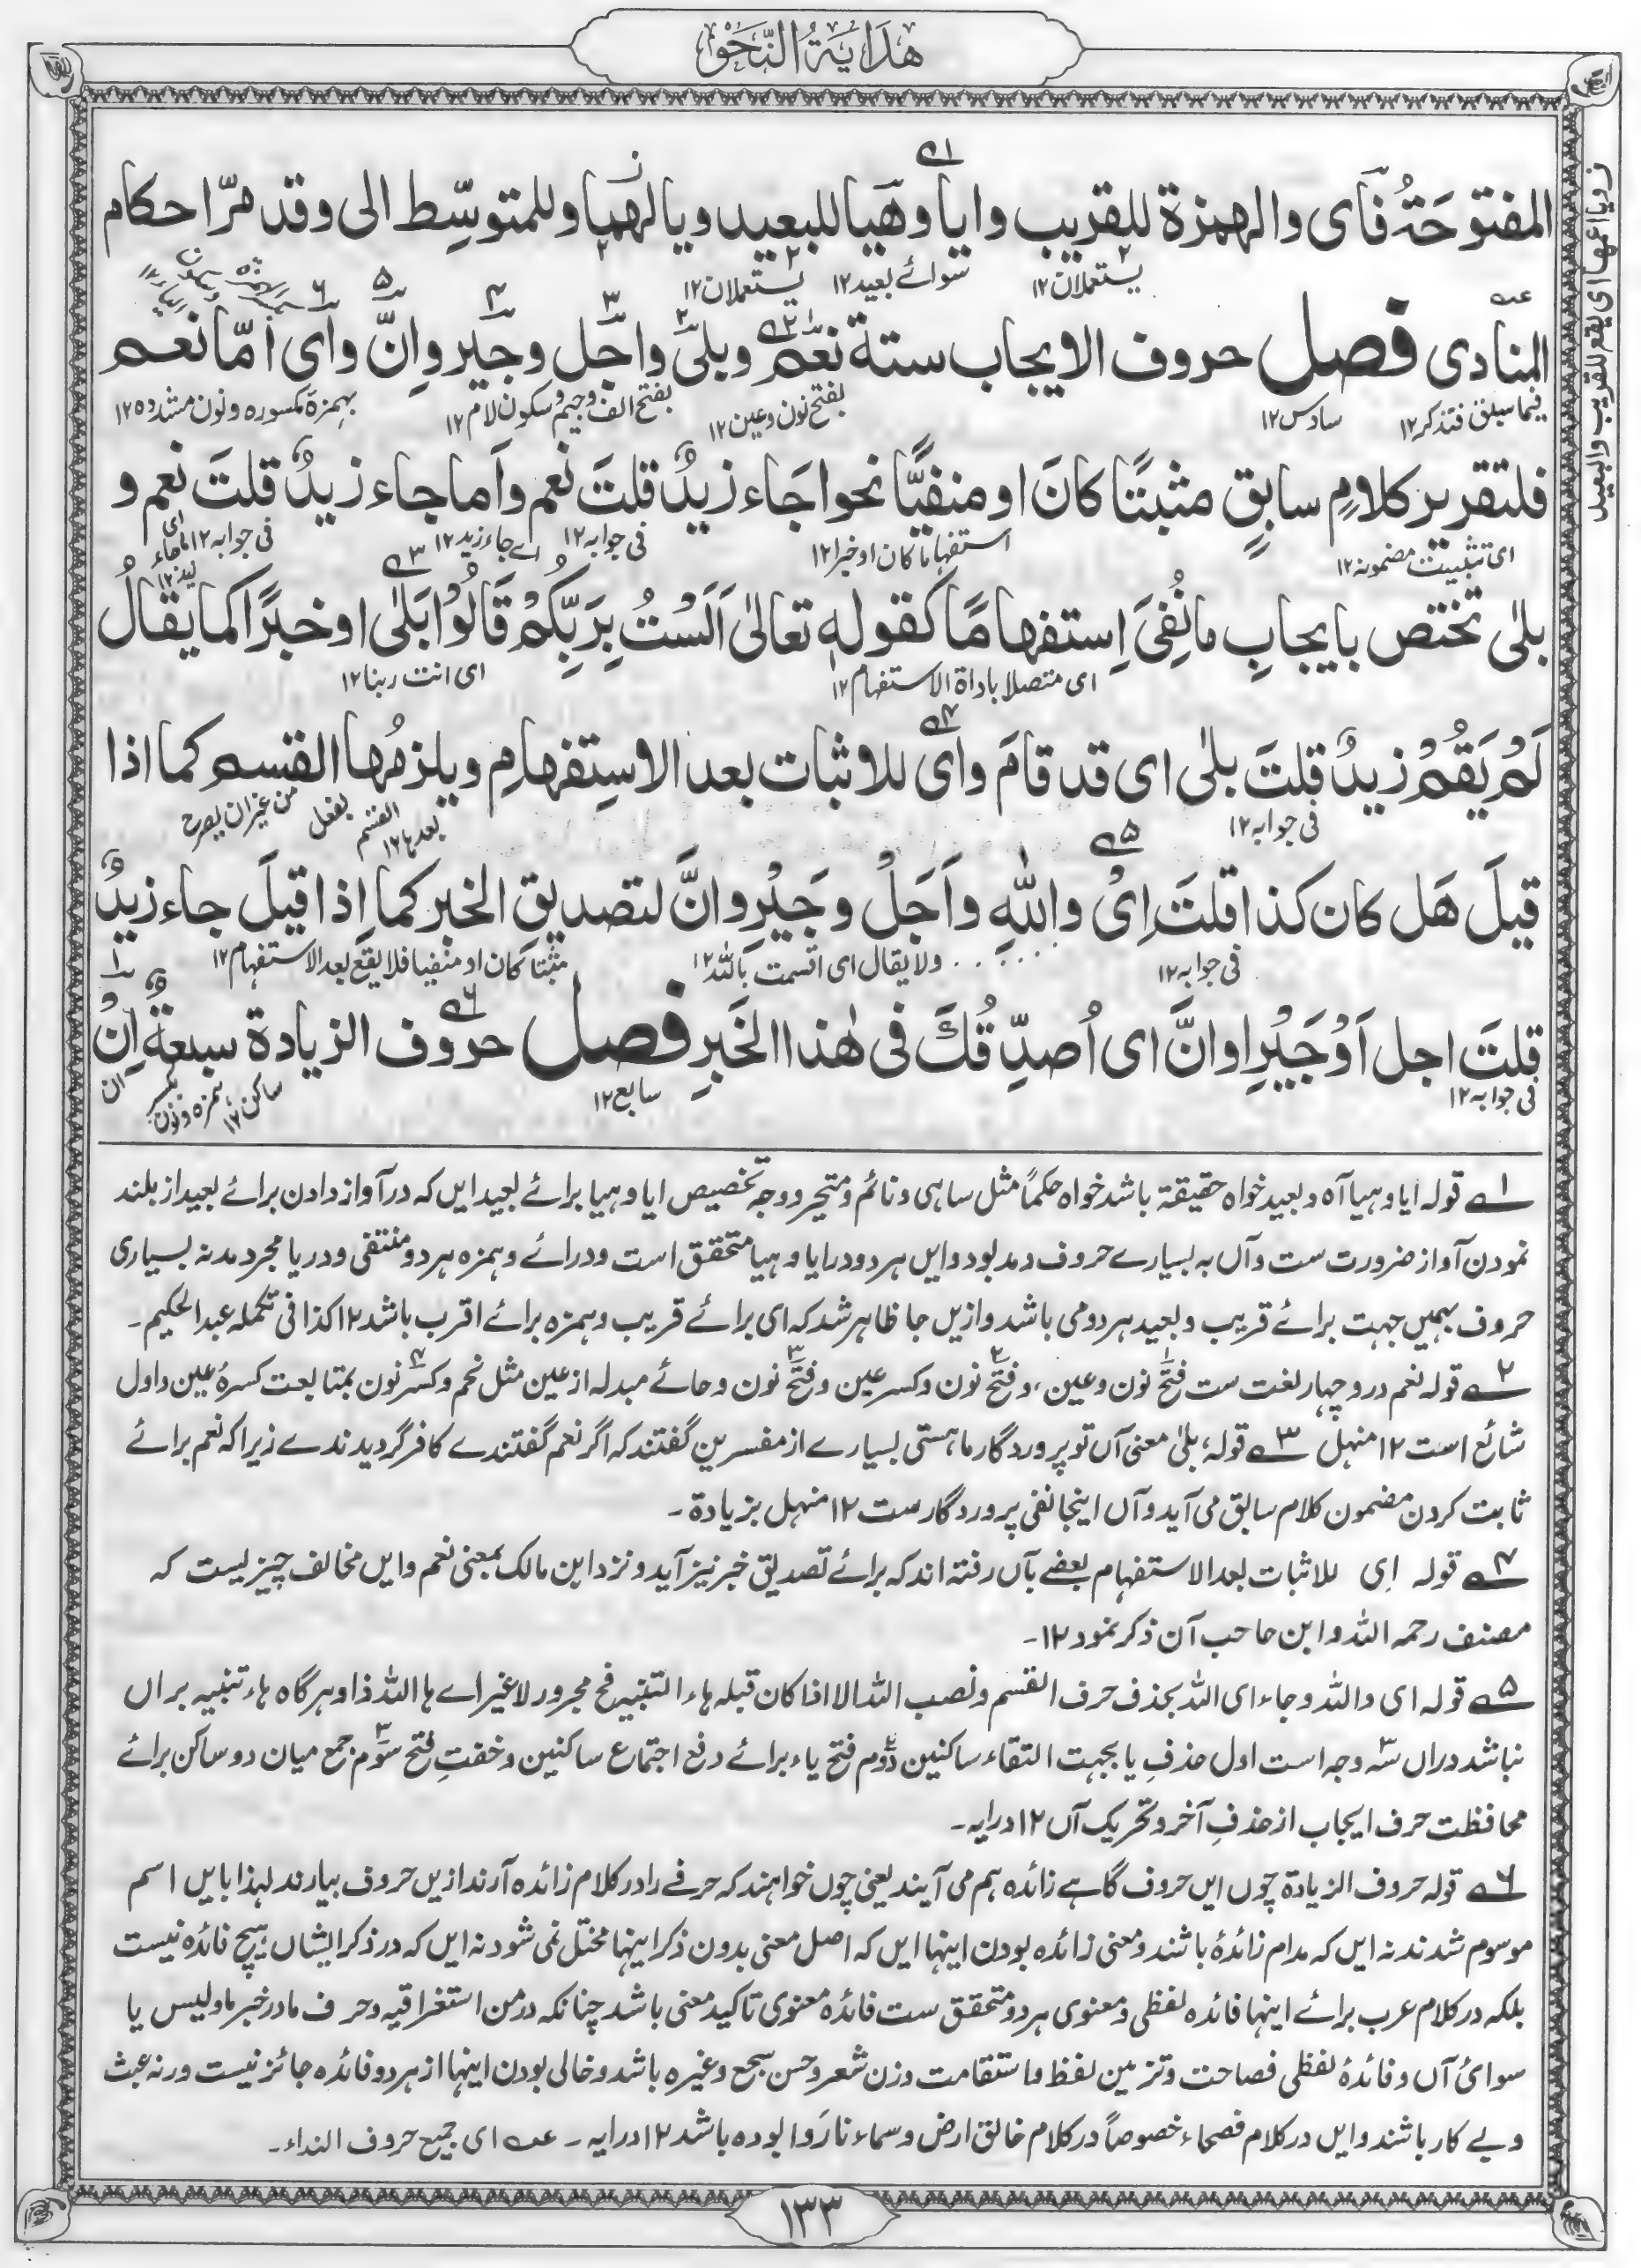 هداية النحو
المفتوحة فأى والهمزة للقريب وايا وهيا للبعيد ويا لهما وللمتوسط الى وقد مرّ احكام
يستعملان١٢ سوائے بعيد١٢ يستعملان١٢
المنادى فصل حروف الايجاب ستة نعم وبلى واجل وجير وانّ واى امّا نعم
فيما سبق فتذكر١٢ سادس١٢ بفتح نون وعين١٢ بفتح الف وجيم وسكون لام١٢ بهمزۀ مكسوره ونون مشدده١٢
فلتقرير كلامٍ سابقٍ مثبتًا كانَ او منفيًّا نحو اجَاء زيدٌ قلتَ نعم واَما جاء زيدٌ قلتَ نعم و
اى تثبيت مضمونه١٢ استفهاما كان او خبرا١٢ فى جوابه١٢ اے جاء زيد١٢ فى جوابه١٢
بلى تختص بايجابِ ما نُفِىَ اِستفهامًا كقوله تعالىٰ اَلَسْتُ بِرَبِّكُمْ قَالُوْا بَلٰى او خبرًا كما يقالُ
اى متصلا باداة الاستفهام١٢ اى انت ربنا١٢
لَمْ يَقُمْ زيدٌ قلتَ بلىٰ اى قد قامَ واى للاثبات بعد الاستِفهامِ ويلزمُها القسم كما اذا
فى جوابه١٢ بعدها١٢ القسم بفعل من غير ان يصرح
قيلَ هَل كان كذا قلتَ اِىْ واللّٰهِ واَجَلْ وجَيْرِ وانَّ لتصديقِ الخبر كما اِذا قيلَ جاء زيدٌ
فى جوابه١٢ ولا يقال اى اقسمت باللّٰه١٢ مثبتا كان او منفيا فلا يقع بعد الاستفهام١٢
قلتَ اجل اَوْ جَيْرِ او انَّ اى اُصدِّقُكَ فى هٰذا الخَبرِ فصل حروف الزيادة سبعةٌ اِنْ
فى جوابه١٢ سابع١٢ ان بكسر همزه ونون ساكن١٢
زويا اعمها اى يقع للقريب والبعيد
١ے قوله ايا وهيا آه وبعيد خواه حقيقة باشد خواه حكماً مثل ساہى ونائم ومتحير ووجہ تخصيص ايا وهيا برائے بعيد ايں كہ در آواز دادن برائے بعيد از بلند
نمودن آواز ضرورت ست وآں بہ بسيارے حروف ومد بود وايں ہر دو در ايا وهيا متحقق است ودر اے وہمزہ ہر دو منتفى ودر يا مجرد مد نہ بسيارى
حروف بہميں جہت برائے قريب وبعيد ہر دو مى باشد وازيں جا ظاہر شد كہ اى برائے قريب وہمزہ برائے اقرب باشد١٢ كذا فى تكملہ عبد الحكيم۔
٢ے قوله نعم در و چہار لغت ست فتح نون وعين، وفتح نون وكسر عين وفتح نون وحائے مبدلہ از عين مثل نحم وكسر نون بمتابعت كسرۂ عين واول
شائع است١٢ منہل ٣ے قولہ، بلىٰ معنى آں تو پروردگار ما ہستى بسيارے از مفسرين گفتند كہ اگر نعم گفتندے كافر گرديدندے زيرا كہ نعم برائے
ثابت كردن مضمون كلام سابق مى آيد وآں اينجا نفى پروردگارست١٢ منہل بزيادة۔
٤ے قوله اِى للاثبات بعد الاستفهام بعضے بآں رفتہ اند كہ برائے تصديق خبر نيز آيد ونزد ابن مالك بمعنى نعم وايں مخالف چيزيست كہ
مصنف رحمہ اللّٰہ وابن حاجب آن ذكر نمود١٢۔
٥ے قوله اى واللّٰه وجاء اى اللّٰه بحذف حرف القسم ونصب اللّٰه الا اذا كان قبله هاء التنبيه فح مجرور لا غير اے ها اللّٰه ذا وہرگاہ ہاء تنبيہ براں
نباشد دراں سہ وجہ است اول حذفِ يا بجہت التقاء ساكنين دوم فتح ياء برائے دفع اجتماع ساكنين وخفتِ فتح سوم جمع ميان دو ساكن برائے
محافظت حرف ايجاب از حذفِ آخر وتحريك آں١٢ درايہ۔
٦ے قوله حروف الزيادة چوں ايں حروف گاہے زائدہ ہم مى آيند يعنى چوں خواہند كہ حرفے را در كلام زائدہ آرند ازيں حروف بيارند لہذا بايں اسم
موسوم شدند نہ ايں كہ مدام زائدۂ باشند ومعنى زائدہ بودن اينہا ايں كہ اصل معنى بدون ذكر اينہا مختل نمى شود نہ ايں كہ در ذكر ايشاں ہيچ فائدہ نيست
بلكہ در كلام عرب برائے اينہا فائدہ لفظى ومعنوى ہر دو متحقق ست فائدہ معنوى تاكيد معنى باشد چنانكہ در من استغراقيہ وحرف ما در خبر ما وليس يا
سوائ آں وفائدۂ لفظى فصاحت وتزيين لفظ واستقامت وزن شعر وحسن سجع وغيرہ باشد وخالى بودن اينہا از ہر دو فائدہ جائز نيست ورنہ عبث
وبے كار باشند وايں در كلام فصحاء خصوصاً در كلام خالق ارض وسماء نارَوا بودہ باشد١٢ درايہ۔ عـه اى جميع حروف النداء۔
١٣٣